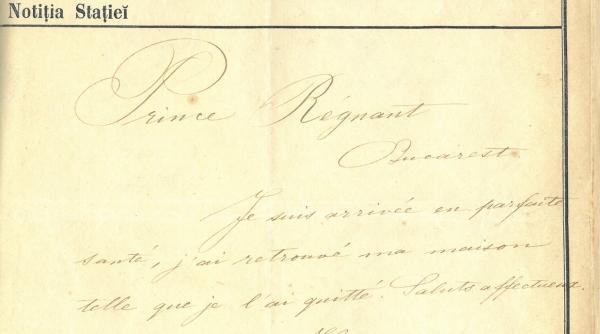 Notiția Stațieĭ
Prince Régnant
Bucarest.
Je suis arrivée en parfaite
santé, j'ai retrouvé ma maison
telle que je l'ai quitté. Saluts affectueux.